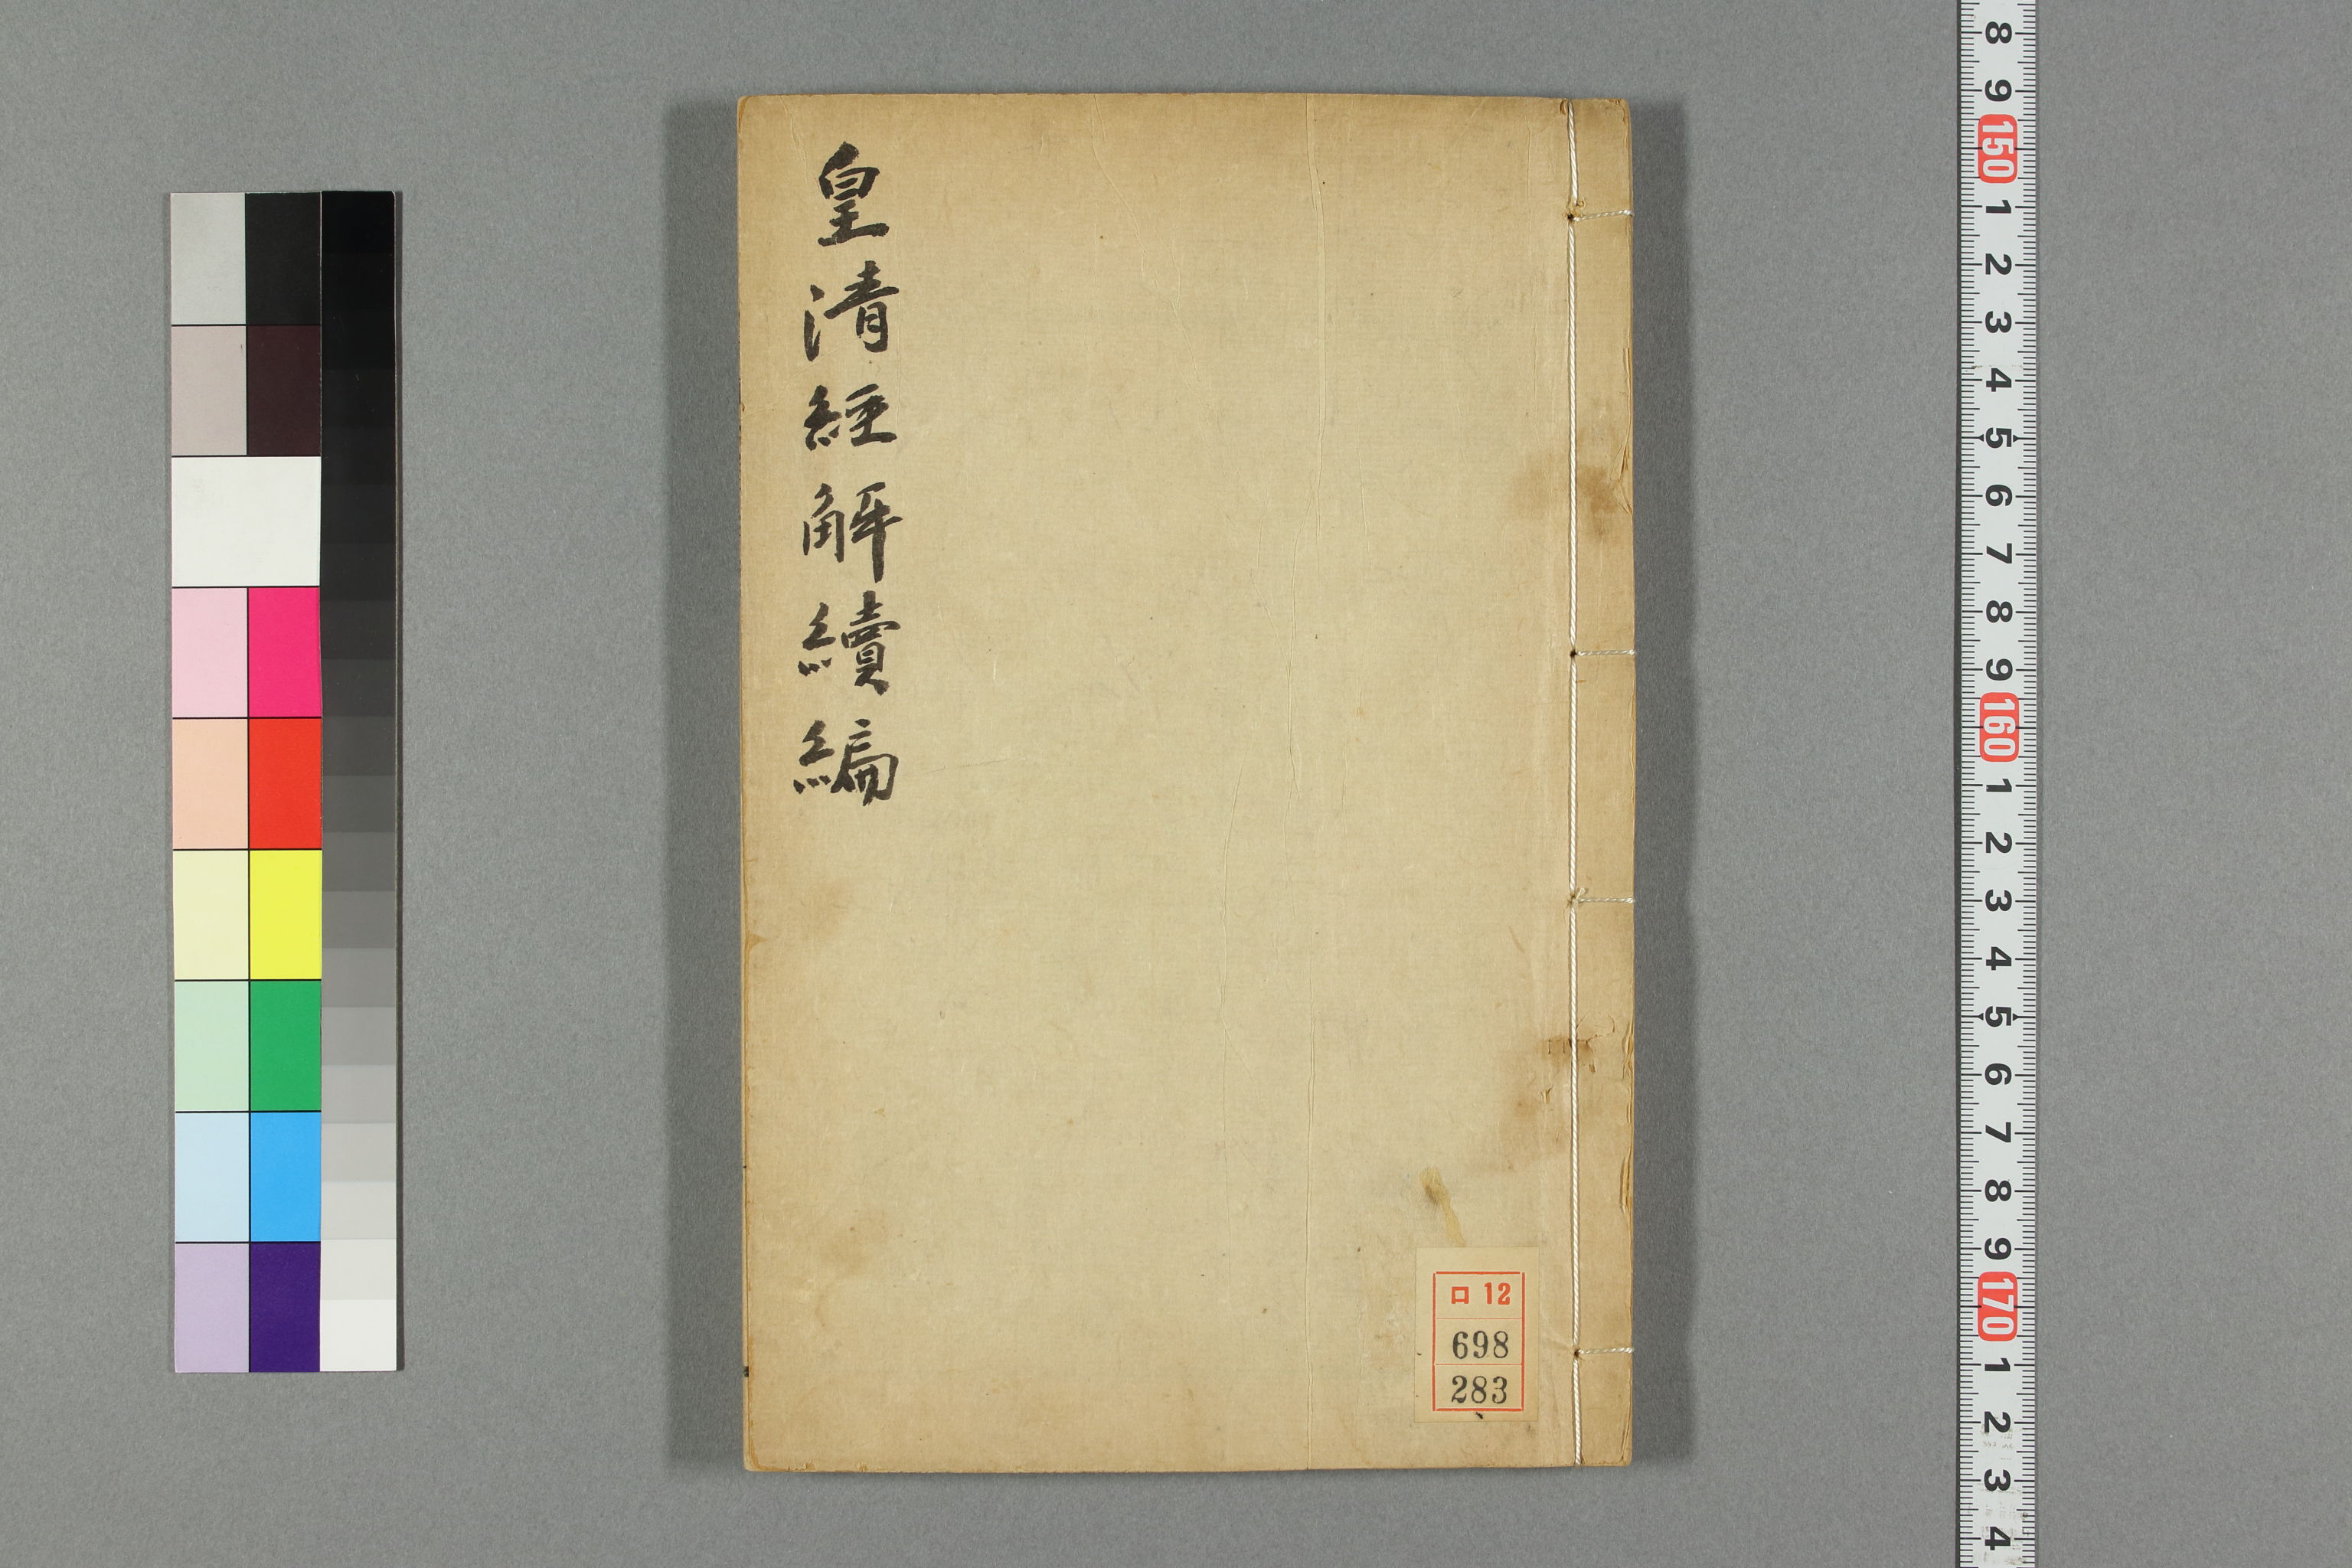 皇清經解續編
ロ 12
698
283
8
9
150
1
2
3
4
5
6
7
8
9
160
1
2
3
4
5
6
7
8
9
170
1
2
3
4